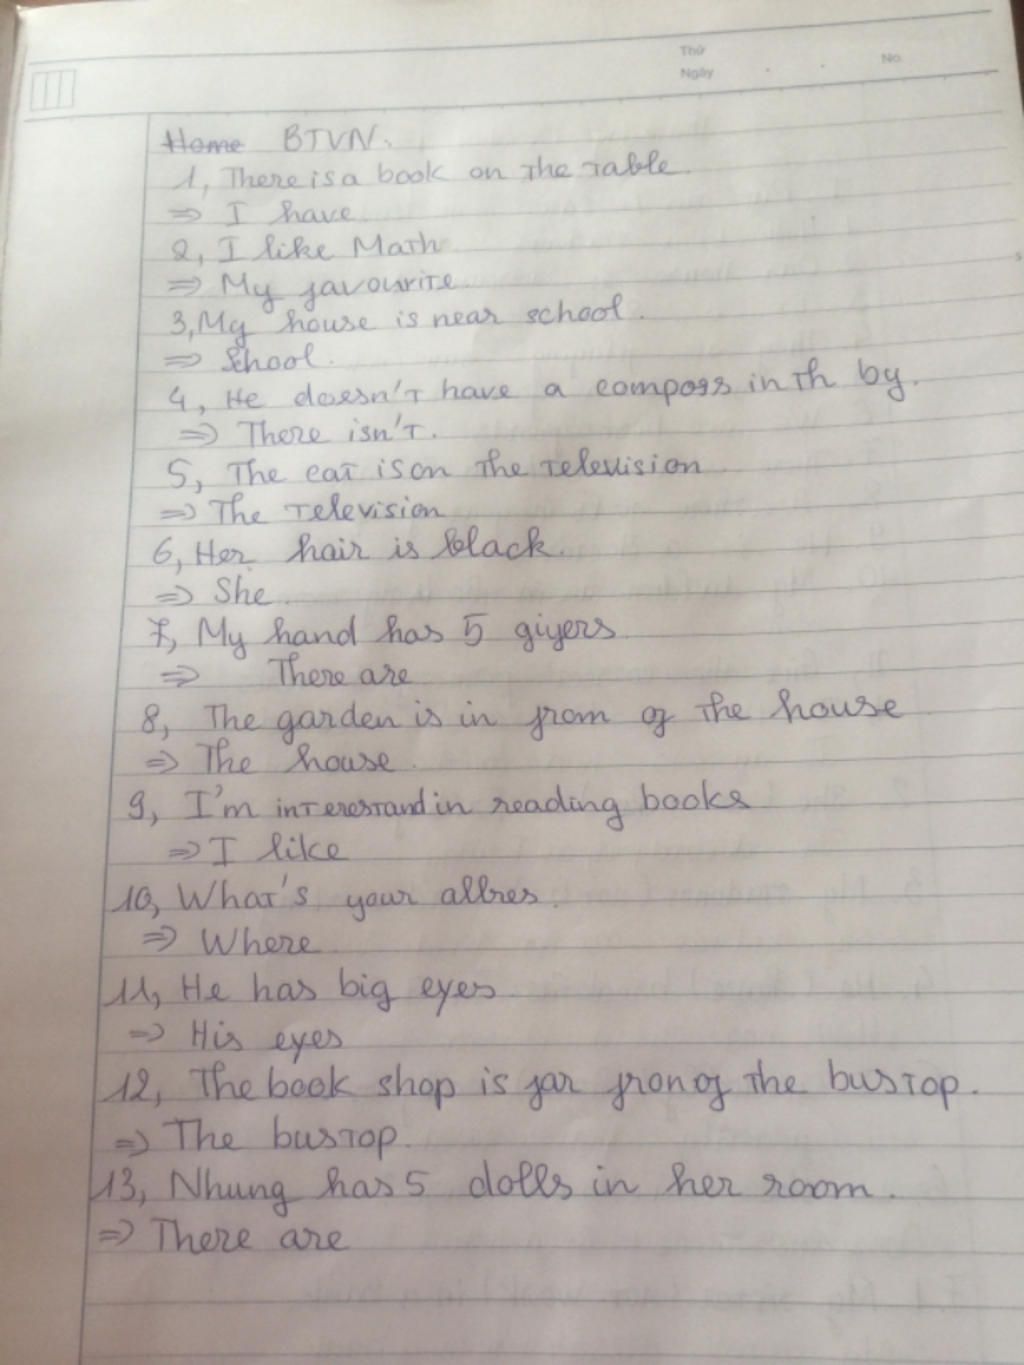 Thứ
Ngày
No.
Home BTVN.
1, There is a book on the table.
⇒ I have
2, I like Math
⇒ My favourite
3, My house is near school.
⇒ School.
4, He doesn't have a compass in th by.
⇒ There isn't.
5, The cat is on the television
⇒ The television
6, Her hair is black.
⇒ She
7, My hand has 5 giyers
⇒ There are
8, The garden is in from of the house
⇒ The house.
9, I'm interestand in reading books
⇒ I like
10, What's your allres.
⇒ Where
11, He has big eyes
⇒ His eyes
12, The book shop is far fron of the bustop.
⇒ The bustop.
13, Nhung has 5 dolls in her room.
⇒ There are